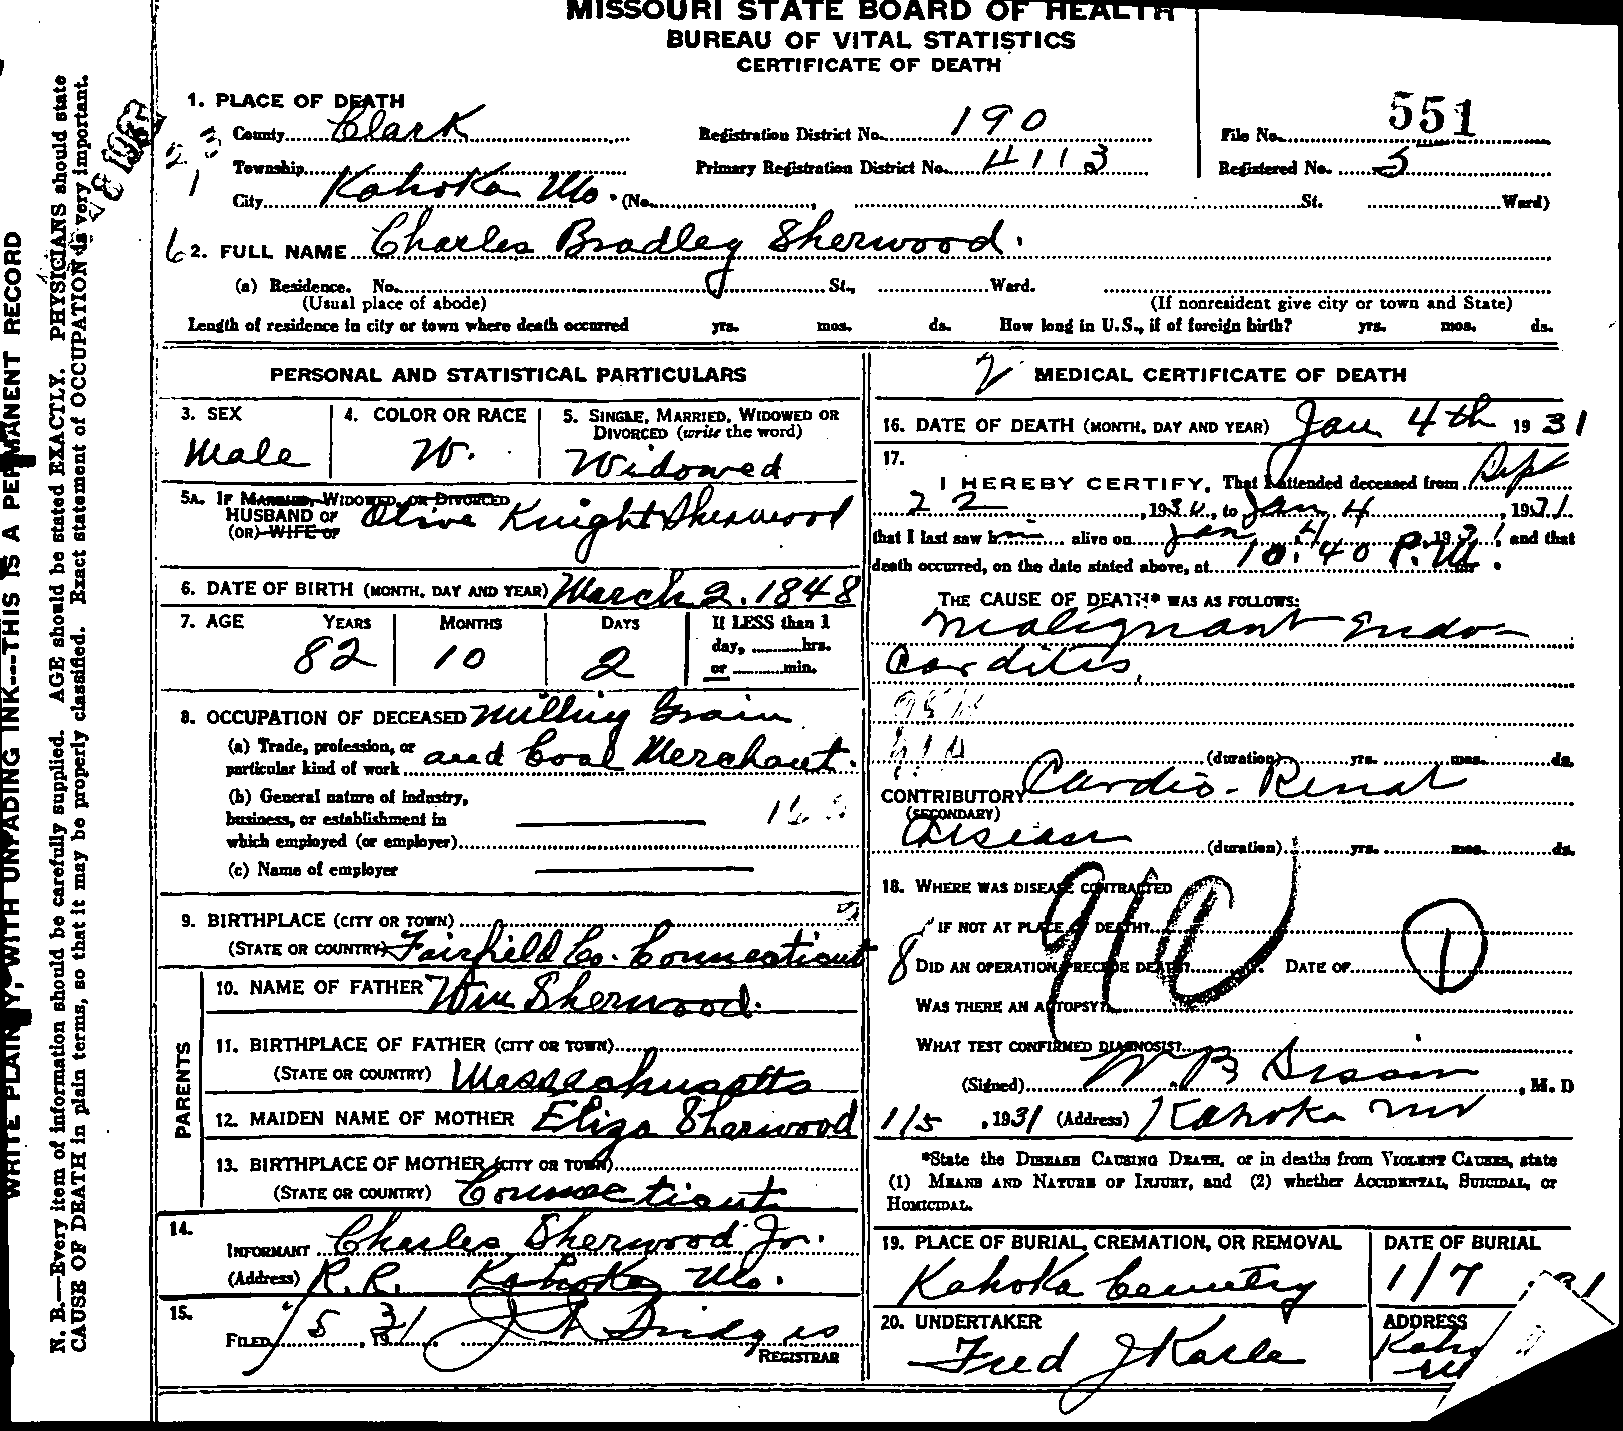 MISSOURI STATE BOARD OF HEALTH
BUREAU OF VITAL STATISTICS
CERTIFICATE OF DEATH
1. PLACE OF DEATH
County Clark
Registration District No. 190
File No. 551
Township
Primary Registration District No. 4113
Registered No. 5
City Kahoka Mo. (No. , St. Ward)
2. FULL NAME Charles Bradley Sherwood.
(a) Residence. No. St., Ward.
(Usual place of abode) (If nonresident give city or town and State)
Length of residence in city or town where death occurred yrs. mos. ds. How long in U.S., if of foreign birth? yrs. mos. ds.
PERSONAL AND STATISTICAL PARTICULARS
3. SEX
Male
4. COLOR OR RACE
W.
5. SINGLE, MARRIED, WIDOWED OR
DIVORCED (write the word)
Widowed
5A. IF MARRIED, WIDOWED, OR DIVORCED
HUSBAND OF
(OR) WIFE OF
Olive Knight Sherwood
6. DATE OF BIRTH (MONTH, DAY AND YEAR) March 2. 1848
7. AGE YEARS MONTHS DAYS If LESS than 1
day, hrs.
or min.
82 10 2
8. OCCUPATION OF DECEASED Milling Grain
(a) Trade, profession, or
particular kind of work and Coal Merchant.
(b) General nature of industry,
business, or establishment in
which employed (or employer)
(c) Name of employer
9. BIRTHPLACE (CITY OR TOWN)
(STATE OR COUNTRY) Fairfield Co. Connecticut
PARENTS
10. NAME OF FATHER Wm Sherwood.
11. BIRTHPLACE OF FATHER (CITY OR TOWN)
(STATE OR COUNTRY) Massachusetts
12. MAIDEN NAME OF MOTHER Eliza Sherwood
13. BIRTHPLACE OF MOTHER (CITY OR TOWN)
(STATE OR COUNTRY) Connecticut
14.
INFORMANT Charles Sherwood Jr.
(Address) R.R. Kahoka Mo.
15.
FILED 1/5, 1931 J A Bridges
REGISTRAR
2 MEDICAL CERTIFICATE OF DEATH
16. DATE OF DEATH (MONTH, DAY AND YEAR) Jan 4th 1931
17.
I HEREBY CERTIFY, That I attended deceased from Sept
22, 1930, to Jan 4, 1931
that I last saw him alive on Jan 4, 1931, and that
death occurred, on the date stated above, at 10:40 P.M.
THE CAUSE OF DEATH* WAS AS FOLLOWS:
Malignant Endo-
carditis,
(duration) yrs. mos. ds.
CONTRIBUTORY Cardio-Renal
(SECONDARY)
Disease
(duration) yrs. mos. ds.
18. WHERE WAS DISEASE CONTRACTED
IF NOT AT PLACE OF DEATH?
DID AN OPERATION PRECEDE DEATH? DATE OF
WAS THERE AN AUTOPSY?
WHAT TEST CONFIRMED DIAGNOSIS?
(Signed) W B Sisson, M. D
1/5, 1931 (Address) Kahoka Mo
*State the DISEASE CAUSING DEATH, or in deaths from VIOLENT CAUSES, state
(1) MEANS AND NATURE OF INJURY, and (2) whether ACCIDENTAL, SUICIDAL, or
HOMICIDAL.
19. PLACE OF BURIAL, CREMATION, OR REMOVAL
Kahoka Cemetry
DATE OF BURIAL
1/7 31
20. UNDERTAKER
Fred J Karle
ADDRESS
N. B.—Every item of information should be carefully supplied. AGE should be stated EXACTLY. PHYSICIANS should state
CAUSE OF DEATH in plain terms, so that it may be properly classified. Exact statement of OCCUPATION is very important.
WRITE PLAINLY, WITH UNFADING INK---THIS IS A PERMANENT RECORD